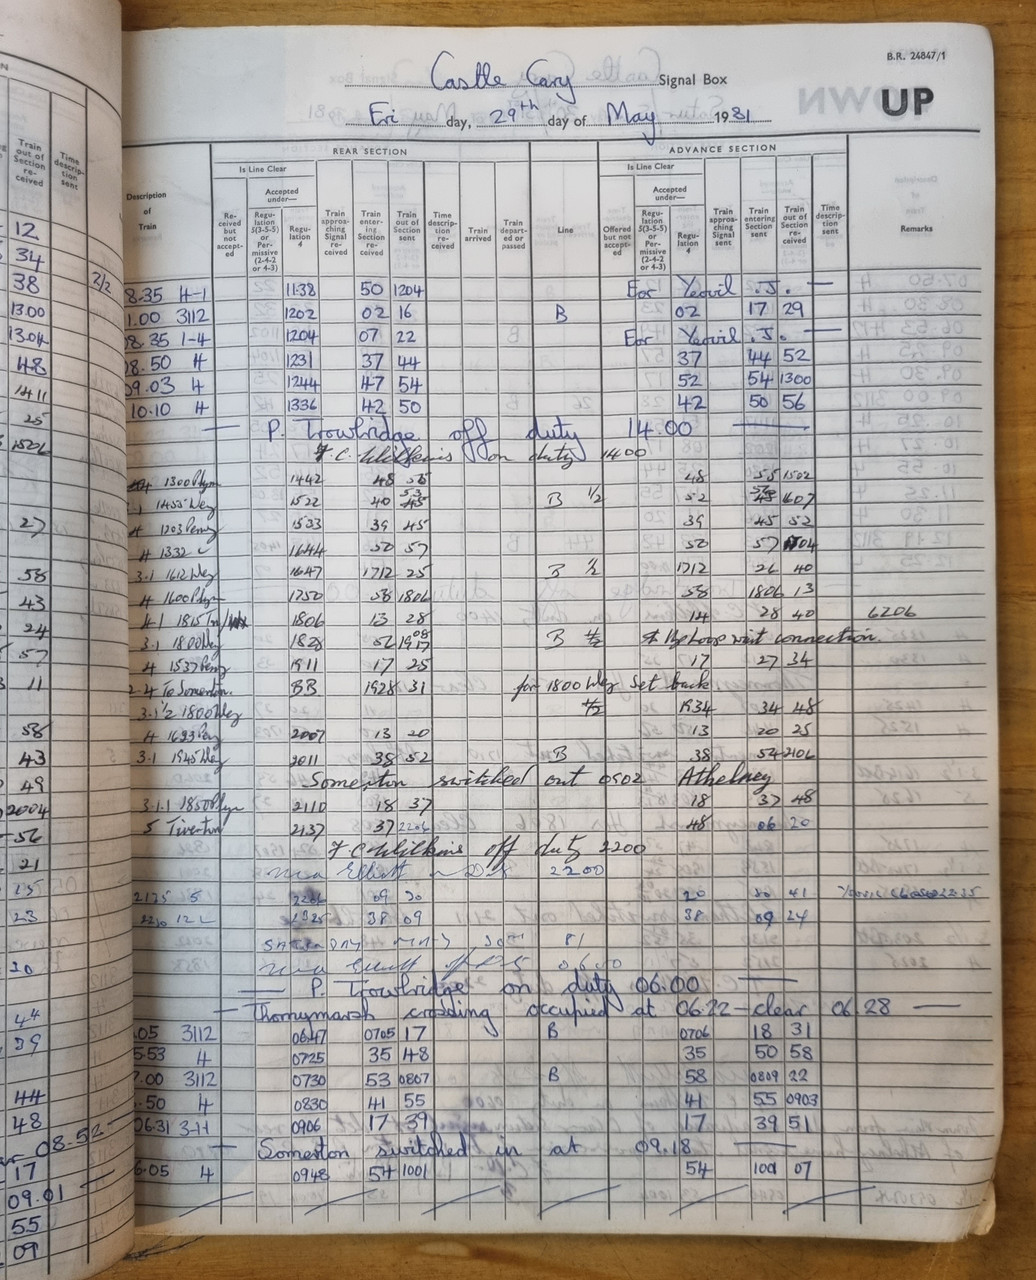 B.R. 24847/1
Castle Cary Signal Box
UP
Fri day, 29th day of May 1981
REAR SECTION ADVANCE SECTION
Is Line Clear Is Line Clear
Accepted under— Accepted under—
Train out of Section re-ceived Time descrip-tion sent Description of Train Re-ceived but not accept-ed Regu-lation 5(3-5-5) or Per-missive (2-4-2 or 4-3) Regu-lation 4 Train approach-ing Signal re-ceived Train enter-ing Section re-ceived Train out of Section sent Time descrip-tion re-ceived Train arrived Train depart-ed or passed Line Offered but not accept-ed Regu-lation 5(3-5-5) or Per-missive (2-4-2 or 4-3) Regu-lation 4 Train approach-ing Signal sent Train entering Section sent Train out of Section re-ceived Time descrip-tion sent Remarks
12
34
38 2/2 8.35 4-1 1138 50 1204 For Yeovil .J. —
1300 1.00 3112 1202 02 16 B 02 17 29
1304 08.35 1-4 1204 07 22 For Yeovil .J. —
48 08.50 4 1231 37 44 37 44 52
1411 09.03 4 1244 47 54 52 54 1300
25 10.10 4 1336 42 50 42 50 56
— P. Trowbridge off duty 14.00 —
F.C. Wilkins on duty 1400
1300 Plym 1442 48 55 48 55 1502
1455 Wey 1522 40 B 1/2 52 1607
27 4 1203 Penz 1533 39 45 39 45 52
4 1332 1644 50 57 50 57
58 3.1 1612 Wey 1647 1712 25 B 1/2 1712 26 40
43 4 1600 Plym 1750 58 1806 58 1806 13
24 4-1 1815 1806 13 28 14 28 40 6206
57 3.1 1800 Wey 1828 52 B Up Loop wait connection.
4 1537 Penz 1911 17 25 17 27 34
11 2-4 To Somerton. BB 1928 31 for 1800 Wey Set back
3.1 1/2 1800 Wey 1934 34 48
58 4 1623 Pen 2007 13 20 13 20 25
43 3.1 1945 Wey 2011 38 52 B 38 54 2106
49 Somerton switched out 0502 Athelney
2004 3.1.1 1850 Plym 2110 18 37 18 37 48
56 5 Tiverton 2137 37 2206 48 06 20
21 F C Wilkins off duty 2200
Elliott 2200
15 2125 5 09 30 20 30 41
23 2230 38 09 38 09 24
81
20 0600
— P. Trowbridge on duty 06.00 —
— Thornymarsh crossing occupied at 06.22 — clear 06.28 —
44
39 .05 3112 0647 0705 17 B 0706 18 31
5.53 4 0725 35 48 35 50 58
7.00 3112 0730 53 0807 B 58 0809 22
44 .50 4 0830 41 55 41 55 0903
48 06.31 3-1-1 0906 17 39 17 39 51
08.52 — — Somerton switched in at 09.18 —
17 6.05 4 0948 54 1001 54 1001 07
09.01
55
09